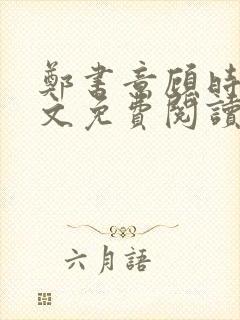 鄭書意顧時
文免費閱讀
六月語